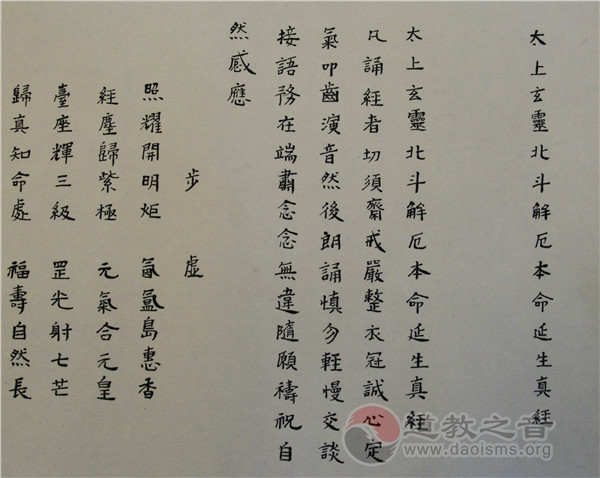 太上玄靈北斗解厄本命延生真經
太上玄靈北斗解厄本命延生真經
凡誦經者切須齋戒嚴整衣冠誠心定
氣叩齒演音然後朗誦慎勿輕慢交談
接語務在端肅念念無違隨願禱祝自
然感應
步虛
照耀開明炬 氤氳島惠香
經塵歸紫極 元氣合元皇
臺座輝三級 罡光射七芒
歸真知命處 福壽自然長
道教之音
www.daoisms.org